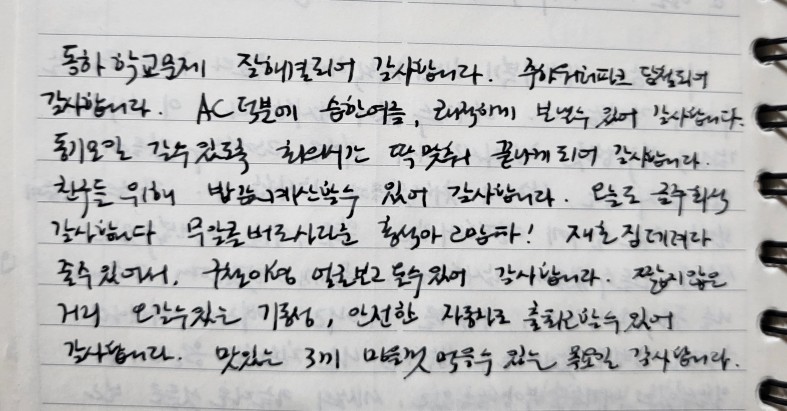 동하 학교문제 잘해결되어 감사합니다. 주향워터파크 당첨되어
감사합니다. AC덕분에 습한여름, 쾌적하게 보낼수 있어 감사합니다.
동기모임 갈수있도록 회의시간 딱맞춰 끝나게 되어 감사합니다.
친구들 위해 밥값계산할수 있어 감사합니다. 오늘도 금주회식
감사합니다 무알콜버드사다준 형석아 고맙다! 재호 집데려다
줄수있어서, 구철이형 얼굴보고 올수있어 감사합니다. 짧지않은
거리 오갈수있는 기동성, 안전한 자동차로 출퇴근할수있어
감사합니다. 맛있는 3끼 마음껏 먹을수 있는 목요일 감사합니다.